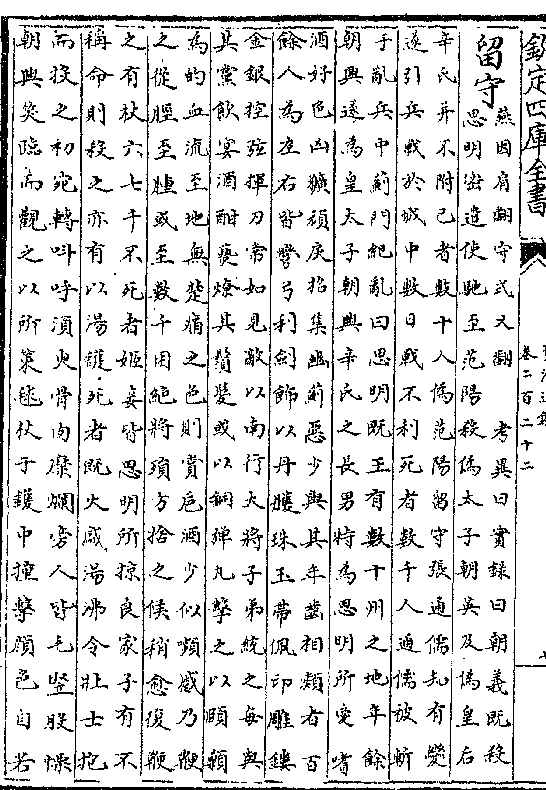 欽定四庫全書
卷二百二十二
留守
燕因肩翻守式又翻 考異曰實錄曰朝義既殺
思明密遣使馳至范陽殺偽太子朝英及偽皇后
辛氏并不附已者數十人偽范陽留守張通儒知有變
遂引兵戰於城中數日戰不利死者數千人通儒被斬
于亂兵中薊門紀亂曰思明既王有數十州之地年餘
朝興遂為皇太子朝興辛氏之長男特為思明所愛嗜
酒好色凶獷頑戾招集幽薊惡少與其年齒相類者百
餘人為左右皆彎弓利劍飾以丹雘珠玉帶佩印雕鏤
金銀控弦揮刀常如見敵以南行大將子弟統之每與
其黨飲宴酒酣褻燎其鬚髮或以銅彈丸擊之以頤顙
為的血流至地無楚痛之色則賞巵酒少似嚬蹙乃鞭
之從脛至踵或至數千困絶將殞方捨之候稍愈復鞭
之有杖六七千不死者姬妾皆思明所掠良家子有不
稱命則殺之亦有以湯鑊死者既火盛湯沸令壯士抱
而投之初宛轉呌呼湏臾骨肉糜爛旁人皆毛竪股慄
朝興笑臨而觀之以所策毬杖于鑊中撞擊顔色自若